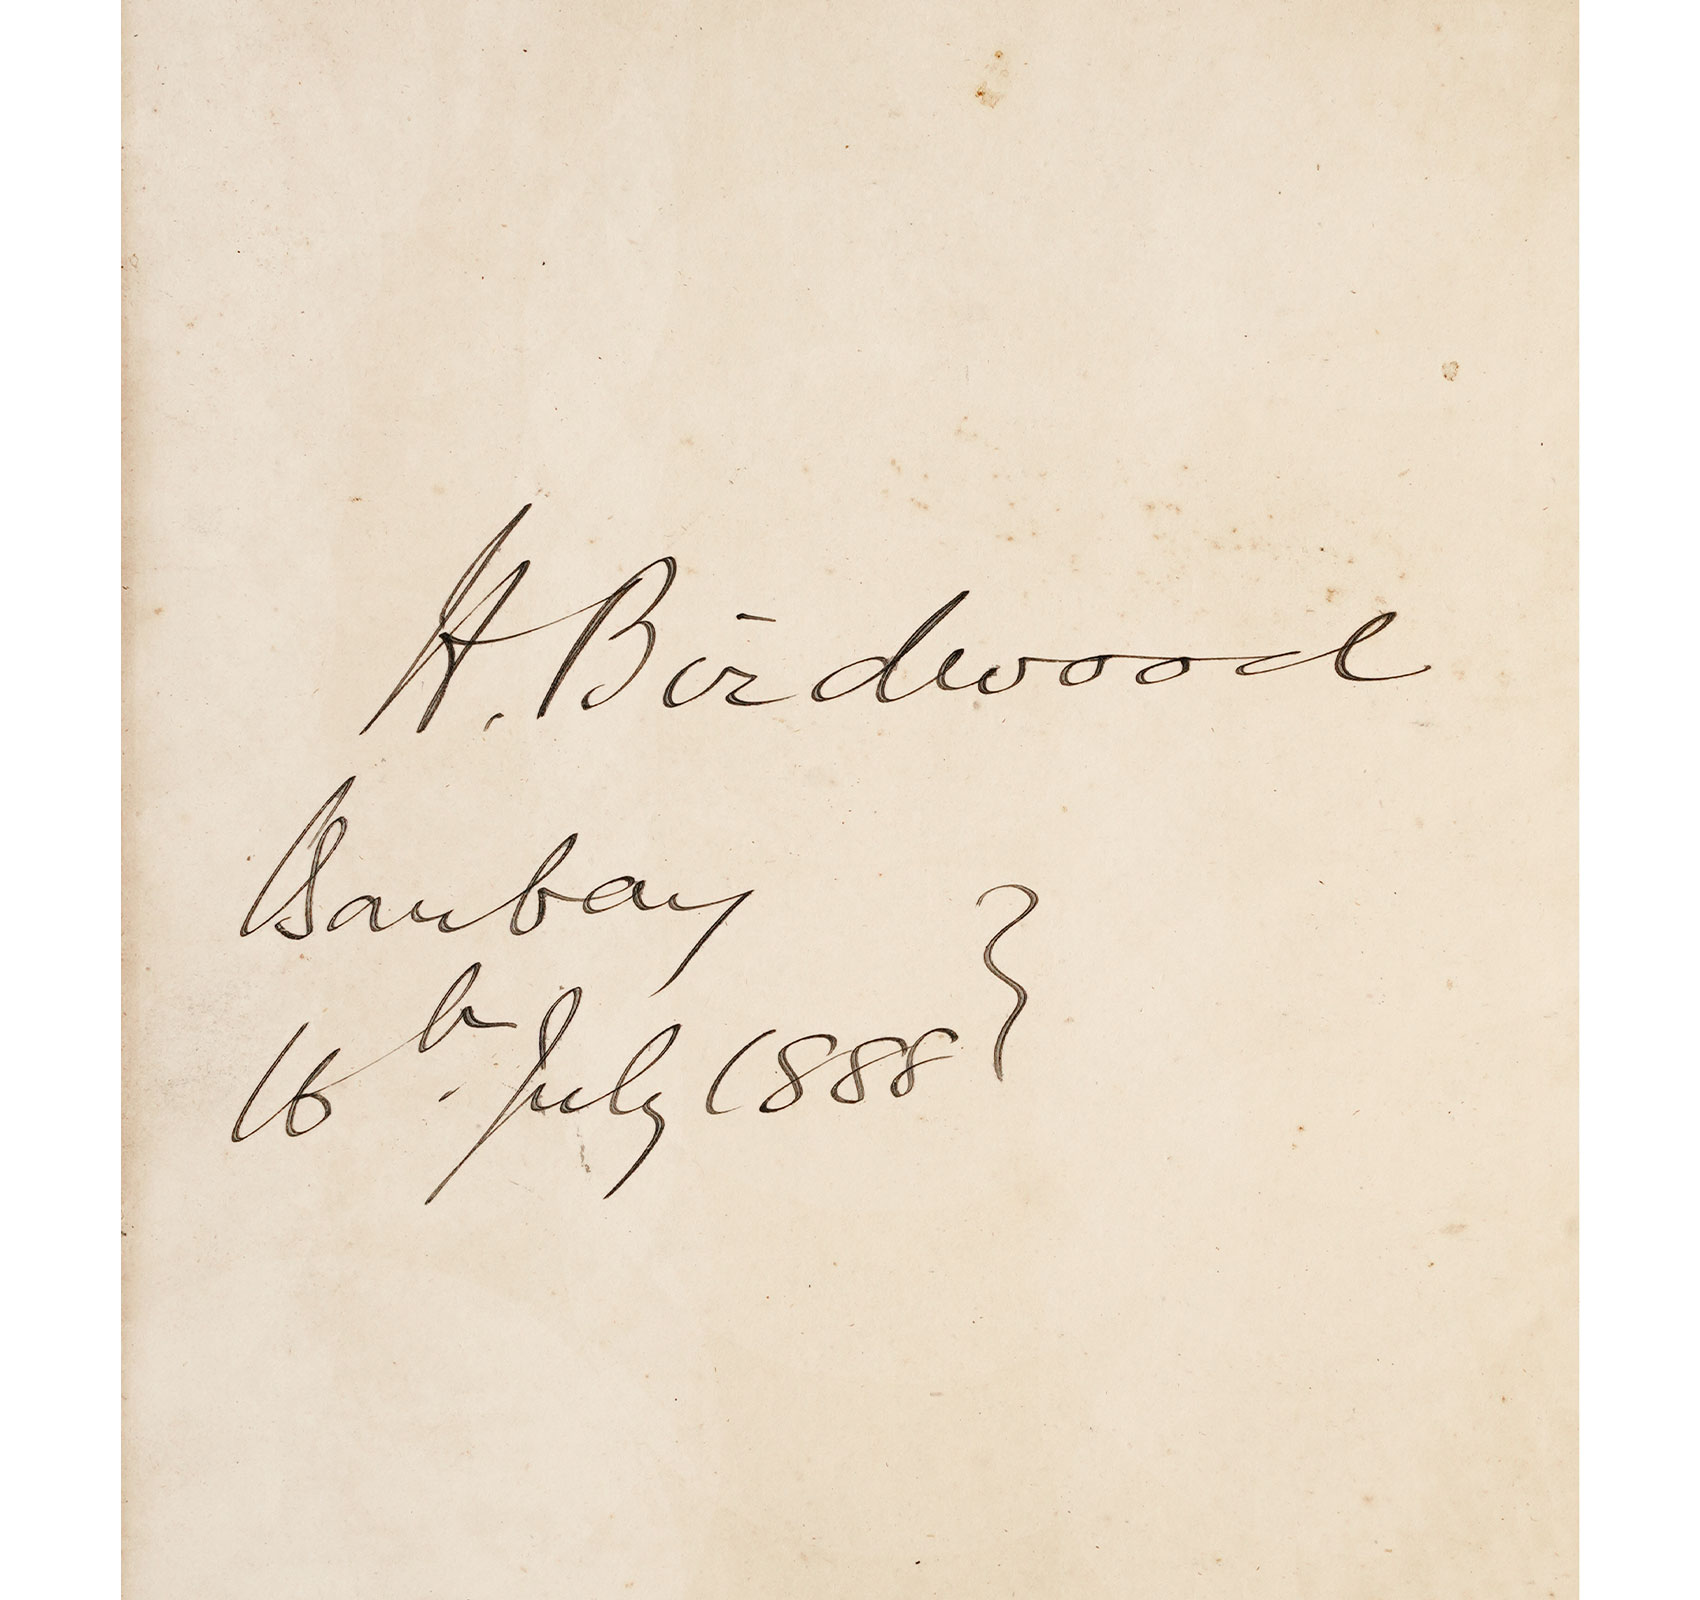 H. Birdwood
Bombay
16th. July 1888 }